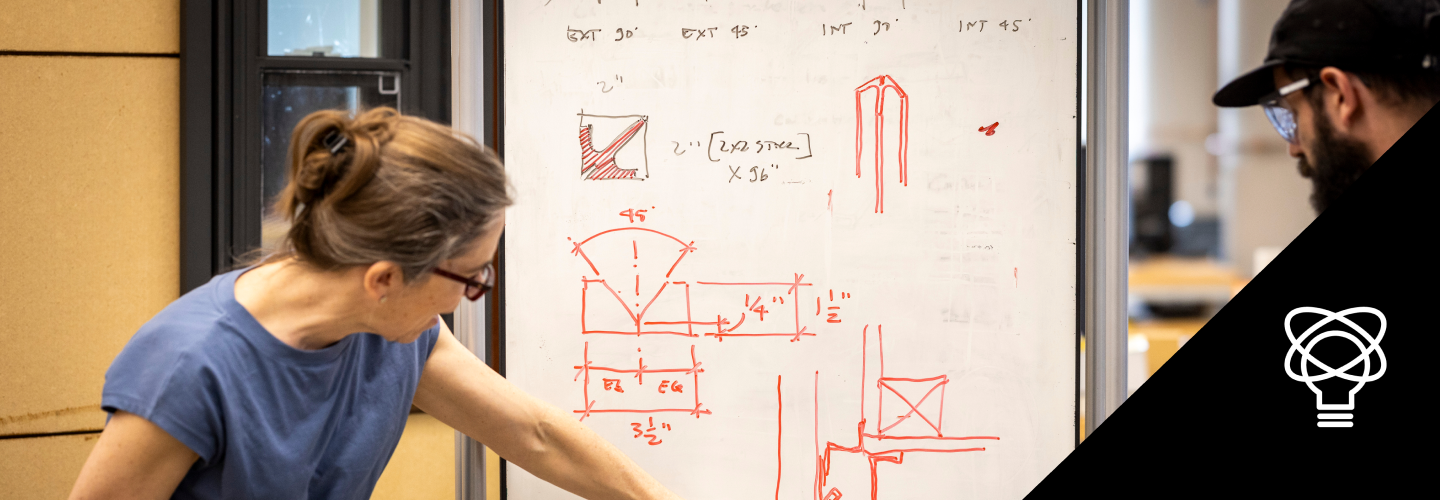 EXT 90° EXT 45° INT 90° INT 45°
2"
2" [2X2 STEEL]
X 96"
45°
1/4" 1 1/2"
EQ EQ
3 1/2"